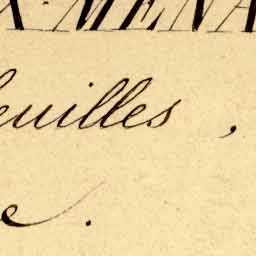 X·MENA
euilles,
e.